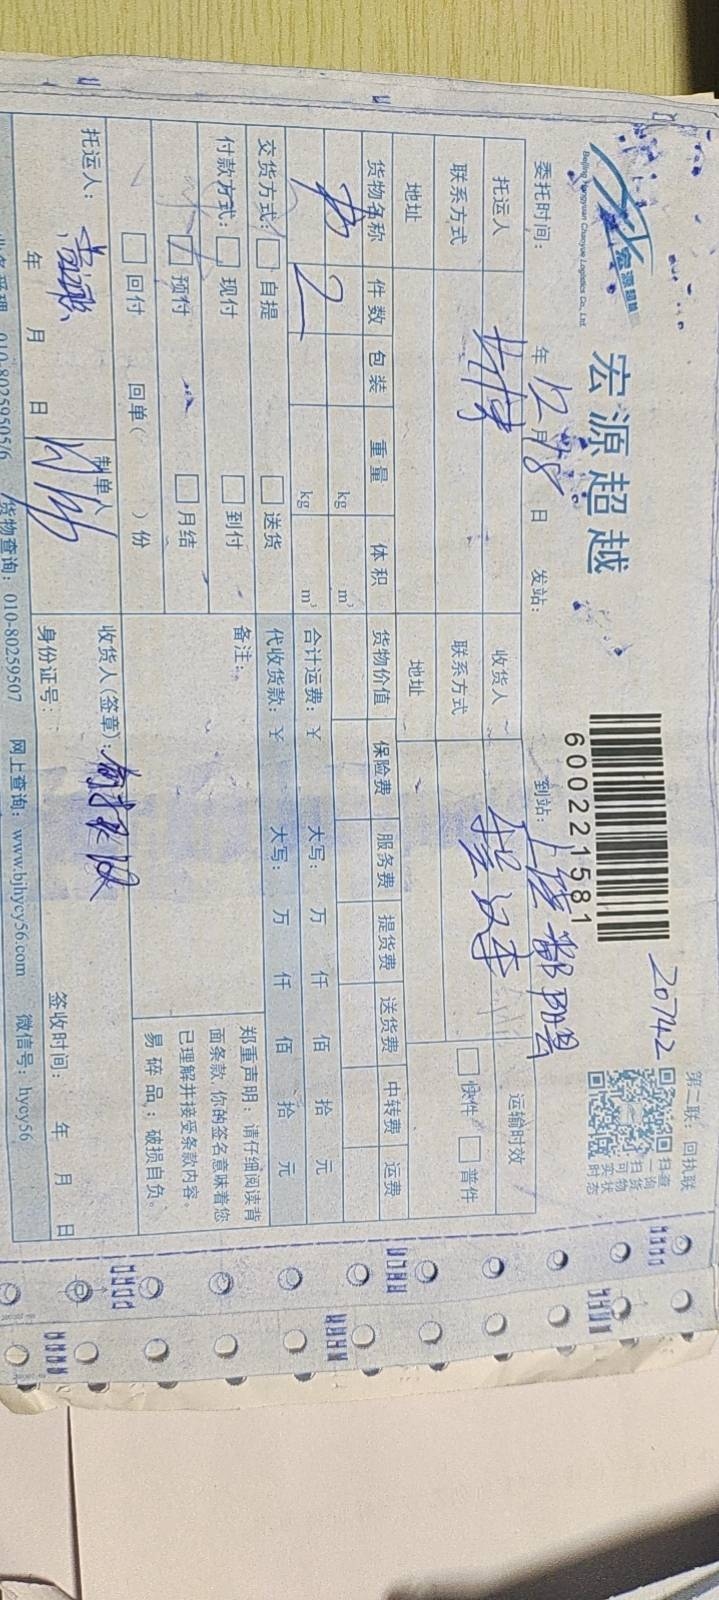 宏源超越
Beijing Hongyuan Chaoyue Logistics Co., Ltd.
宏源超越
600221581
20742
第二联：回执联
扫一扫
查询货物
可实时状态
委托时间： 年 12 月 18 日 发站： 到站：
托运人 收货人 运输时效
联系方式 联系方式 快件 普件
地址 地址
货物名称 件数 包装 重量 体积 货物价值 保险费 服务费 提货费 送货费 中转费 运费
书 2 kg m³
kg m³ 合计运费：￥ 大写： 万 仟 佰 拾 元
交货方式： 自提 送货 代收货款：￥ 大写： 万 仟 佰 拾 元
付款方式： 现付 到付 备注：
预付 月结
回付 回单( )份
郑重声明：请仔细阅读背
面条款 你的签名意味着您
已理解并接受条款内容。
易碎品：破损自负。
托运人： 制单人 收货人(签章)：
年 月 日 身份证号： 签收时间： 年 月 日
业务受理 010-80259505/6 货物查询：010-80259507 网上查询：www.bjhycy56.com 微信号：hycy56